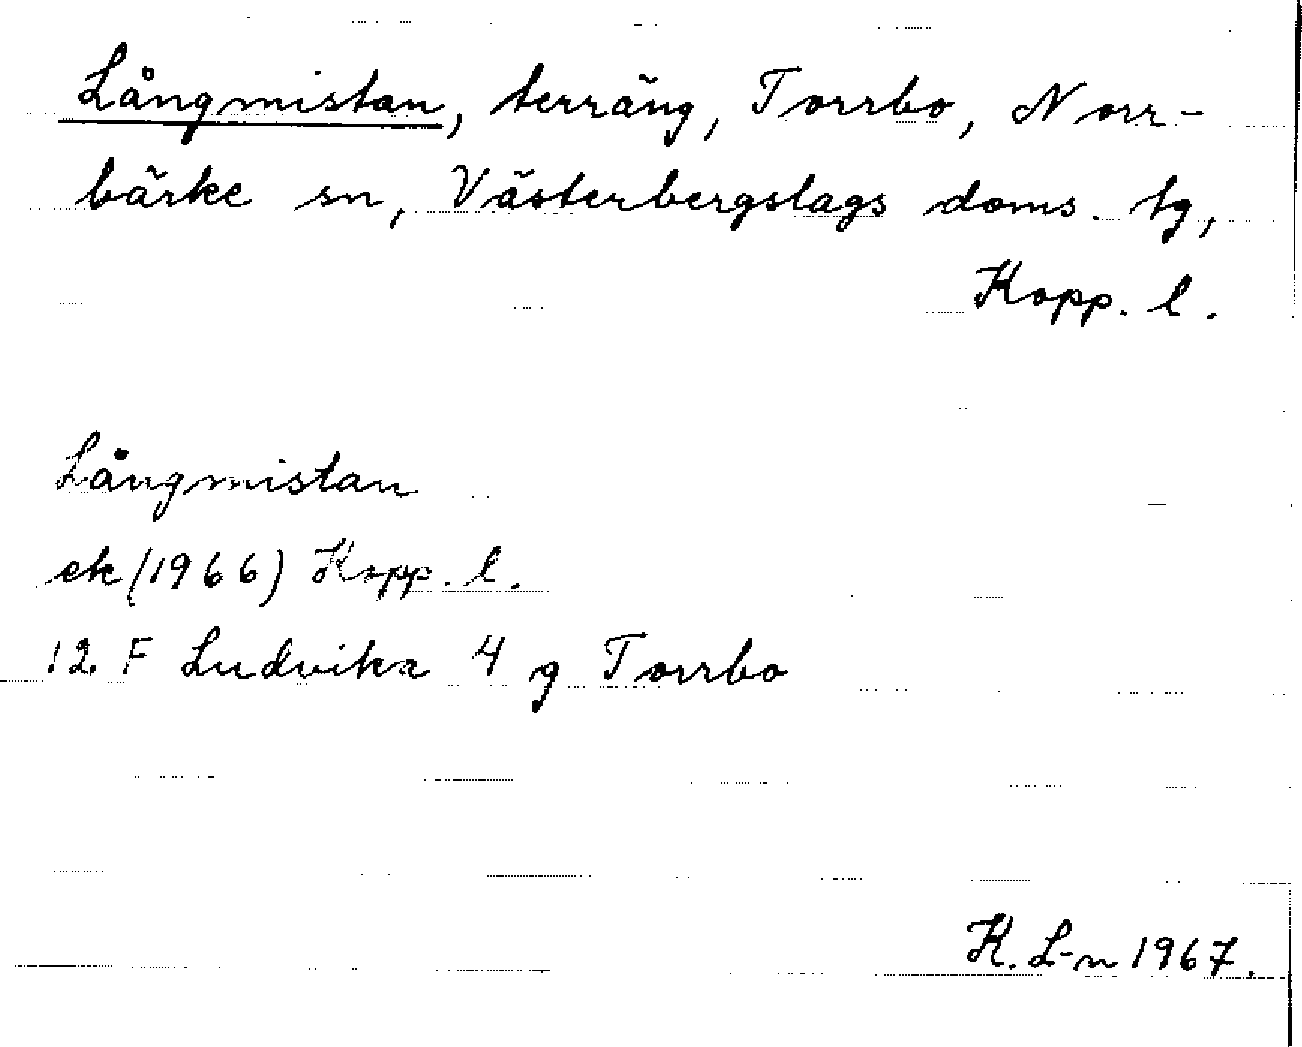 Långmistan, terräng, Torrbo, Norr-
bärke sn, Västerbergslags doms. tg,
Kopp. l.
Långmistan
ek (1966) Kopp. l.
12 F Ludvika 4 g Torrbo
K. L-n 1967.